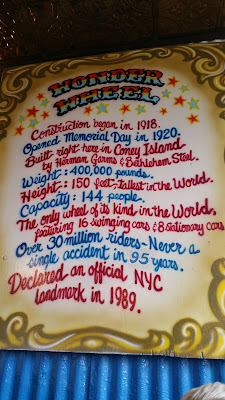 WONDER
WHEEL
Construction began in 1918.
Opened Memorial Day in 1920.
Built right here in Coney Island
by Herman Garms & Bethlehem Steel.
Weight: 400,000 pounds.
Height: 150 feet-tallest in the World.
Capacity: 144 people.
The only wheel of its kind in the World,
featuring 16 swinging cars & 8 stationary cars
Over 30 million riders-Never a
single accident in 95 years.
Declared an official NYC
landmark in 1989.